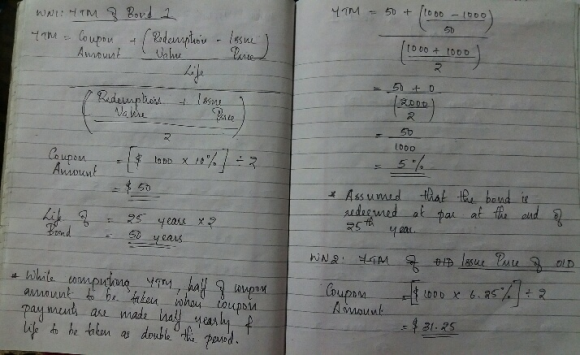 WN1: YTM of Bond 1
YTM = Coupon Amount + (Redemption Value - Issue Price)
Life
(Redemption Value + Issue Price)
2
Coupon Amount = [$ 1000 x 10%] ÷ 2
= $ 50
Life of Bond = 25 years x 2
= 50 years
* While computing YTM, half of coupon
amount to be taken when coupon
payments are made half yearly &
life to be taken as double the period.
YTM = 50 + (1000 - 1000)
50
(1000 + 1000)
2
= 50 + 0
(2000)
2
= 50
1000
= 5%
* Assumed that the bond is
redeemed at par at the end of
25th year.
WN2: YTM of Issue Price of OID
Coupon Amount = [$ 1000 x 6.25%] ÷ 2
= $ 31.25